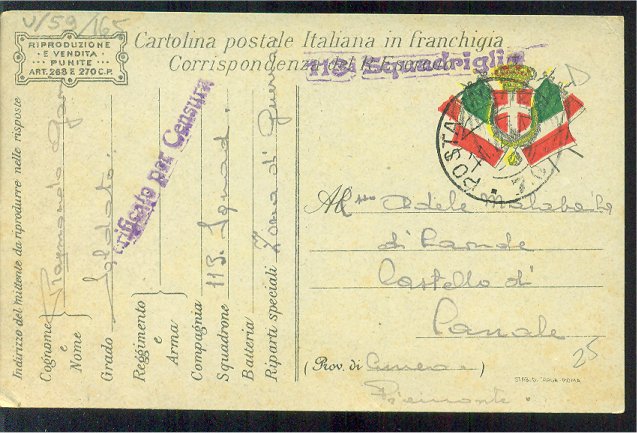 V/59/165
RIPRODUZIONE
E VENDITA
PUNITE
ART. 268 E 270 C.P.
Cartolina postale Italiana in franchigia
Corrispondenza del R. Esercito
113ª Squadriglia
Verificato per Censura
POSTA
Indirizzo del mittente da riprodurre nelle risposte
Cognome Raymondo
e
Nome
Grado Soldato
Reggimento
e
Arma
Compagnia
Squadrone 113. Squad
Batteria
Riparti speciali Zona di Guerra
Adele
di
Castello di
Canale
(Prov. di Cuneo)
Piemonte.
25